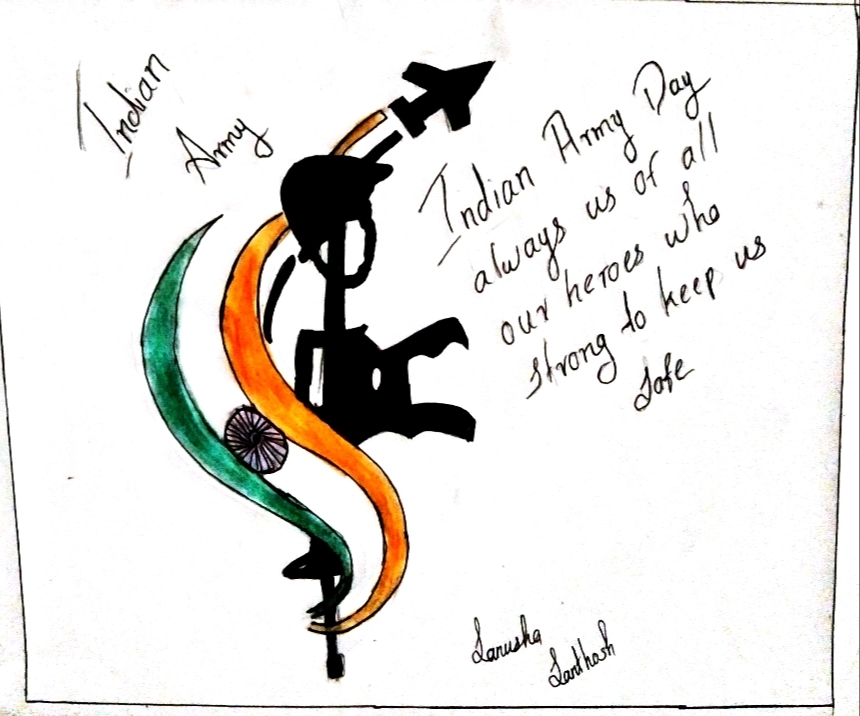 Indian
Army
Indian Army Day
always us of all
our heroes who
strong to keep us
safe
Sarusha